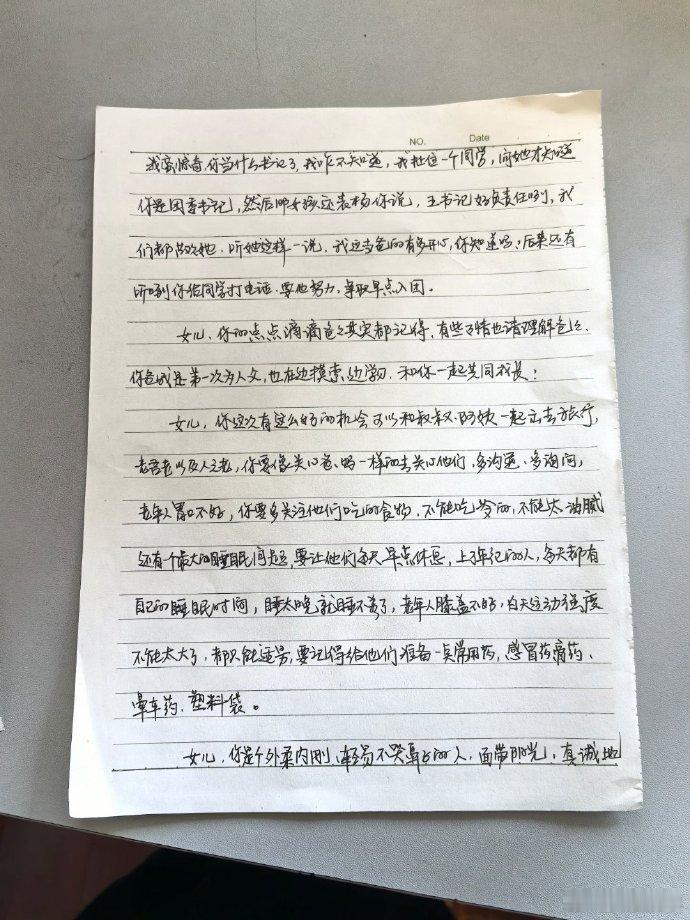 NO. Date
我蛮惊奇,你当什么书记了,我咋不知道,我拉住一个同学,问她才知道
你是团委书记,然后那女孩还表扬你说,王书记好负责任哟,我
们都喜欢她.听她这样一说,我这当爸的有多开心,你知道吗,后来还有
听到你给同学打电话.要他努力,争取早点入团。
女儿,你的点点滴滴爸爸其实都记得,有些事情也请理解爸爸、
你爸我是第一次为人父,也在边摸索,边学习.和你一起共同成长!
女儿,你这次有这么好的机会可以和叔叔.阿姨一起出去旅行,
老吾老以及人之老,你要像关心爸、妈一样的去关心他们,多沟通、多询问,
老年人胃口不好,你要多关注他们吃的食物.不能吃冷的,不能太油腻
还有一个最大的睡眠问题,要让他们每天早点休息,上了年纪的人,每天都有
自己的睡眠时间,睡太晚就睡不着了,老年人膝盖不好,白天运动强度
不能太大了,都只能适当,要记得给他们准备一点常用药,感冒药膏药、
晕车药、塑料袋。
女儿,你是个外柔内刚、轻易不哭鼻子的人,面带阳光,真诚地